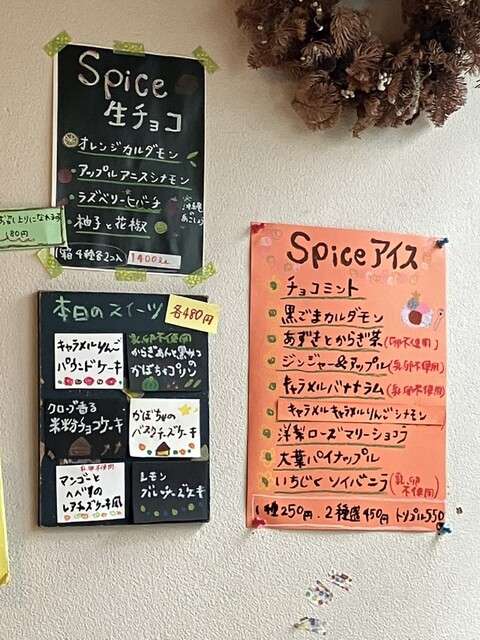 Spice
生チョコ
オレンジカルダモン
アップルアニスシナモン
ラズベリーヒバーチ
沖縄の
柚子と花椒
1箱 4種各2コ入 1400えん
お召し上りになれます
180円
本日のスイーツ
各480円
キャラメルりんご
パウンドケーキ
乳・卵不使用
かぼちゃプリン
クローブ香る
米粉チョコケーキ
かぼちゃの
バスクチーズケーキ
乳・卵不使用
マンゴーと
レアチーズケーキ風
レモン
ブルーチーズケーキ
Spice アイス
チョコミント
黒ごまカルダモン
あずきとからぎ茶(卵不使用)
ジンジャー&アップル(乳・卵不使用)
キャラメルバナナラム(乳・卵不使用)
キャラメルキャラメルりんごシナモン
洋梨ローズマリーショコラ
大葉パイナップル
いちじくソイバニラ(乳・卵不使用)
1種250円、2種盛450円 トリプル550